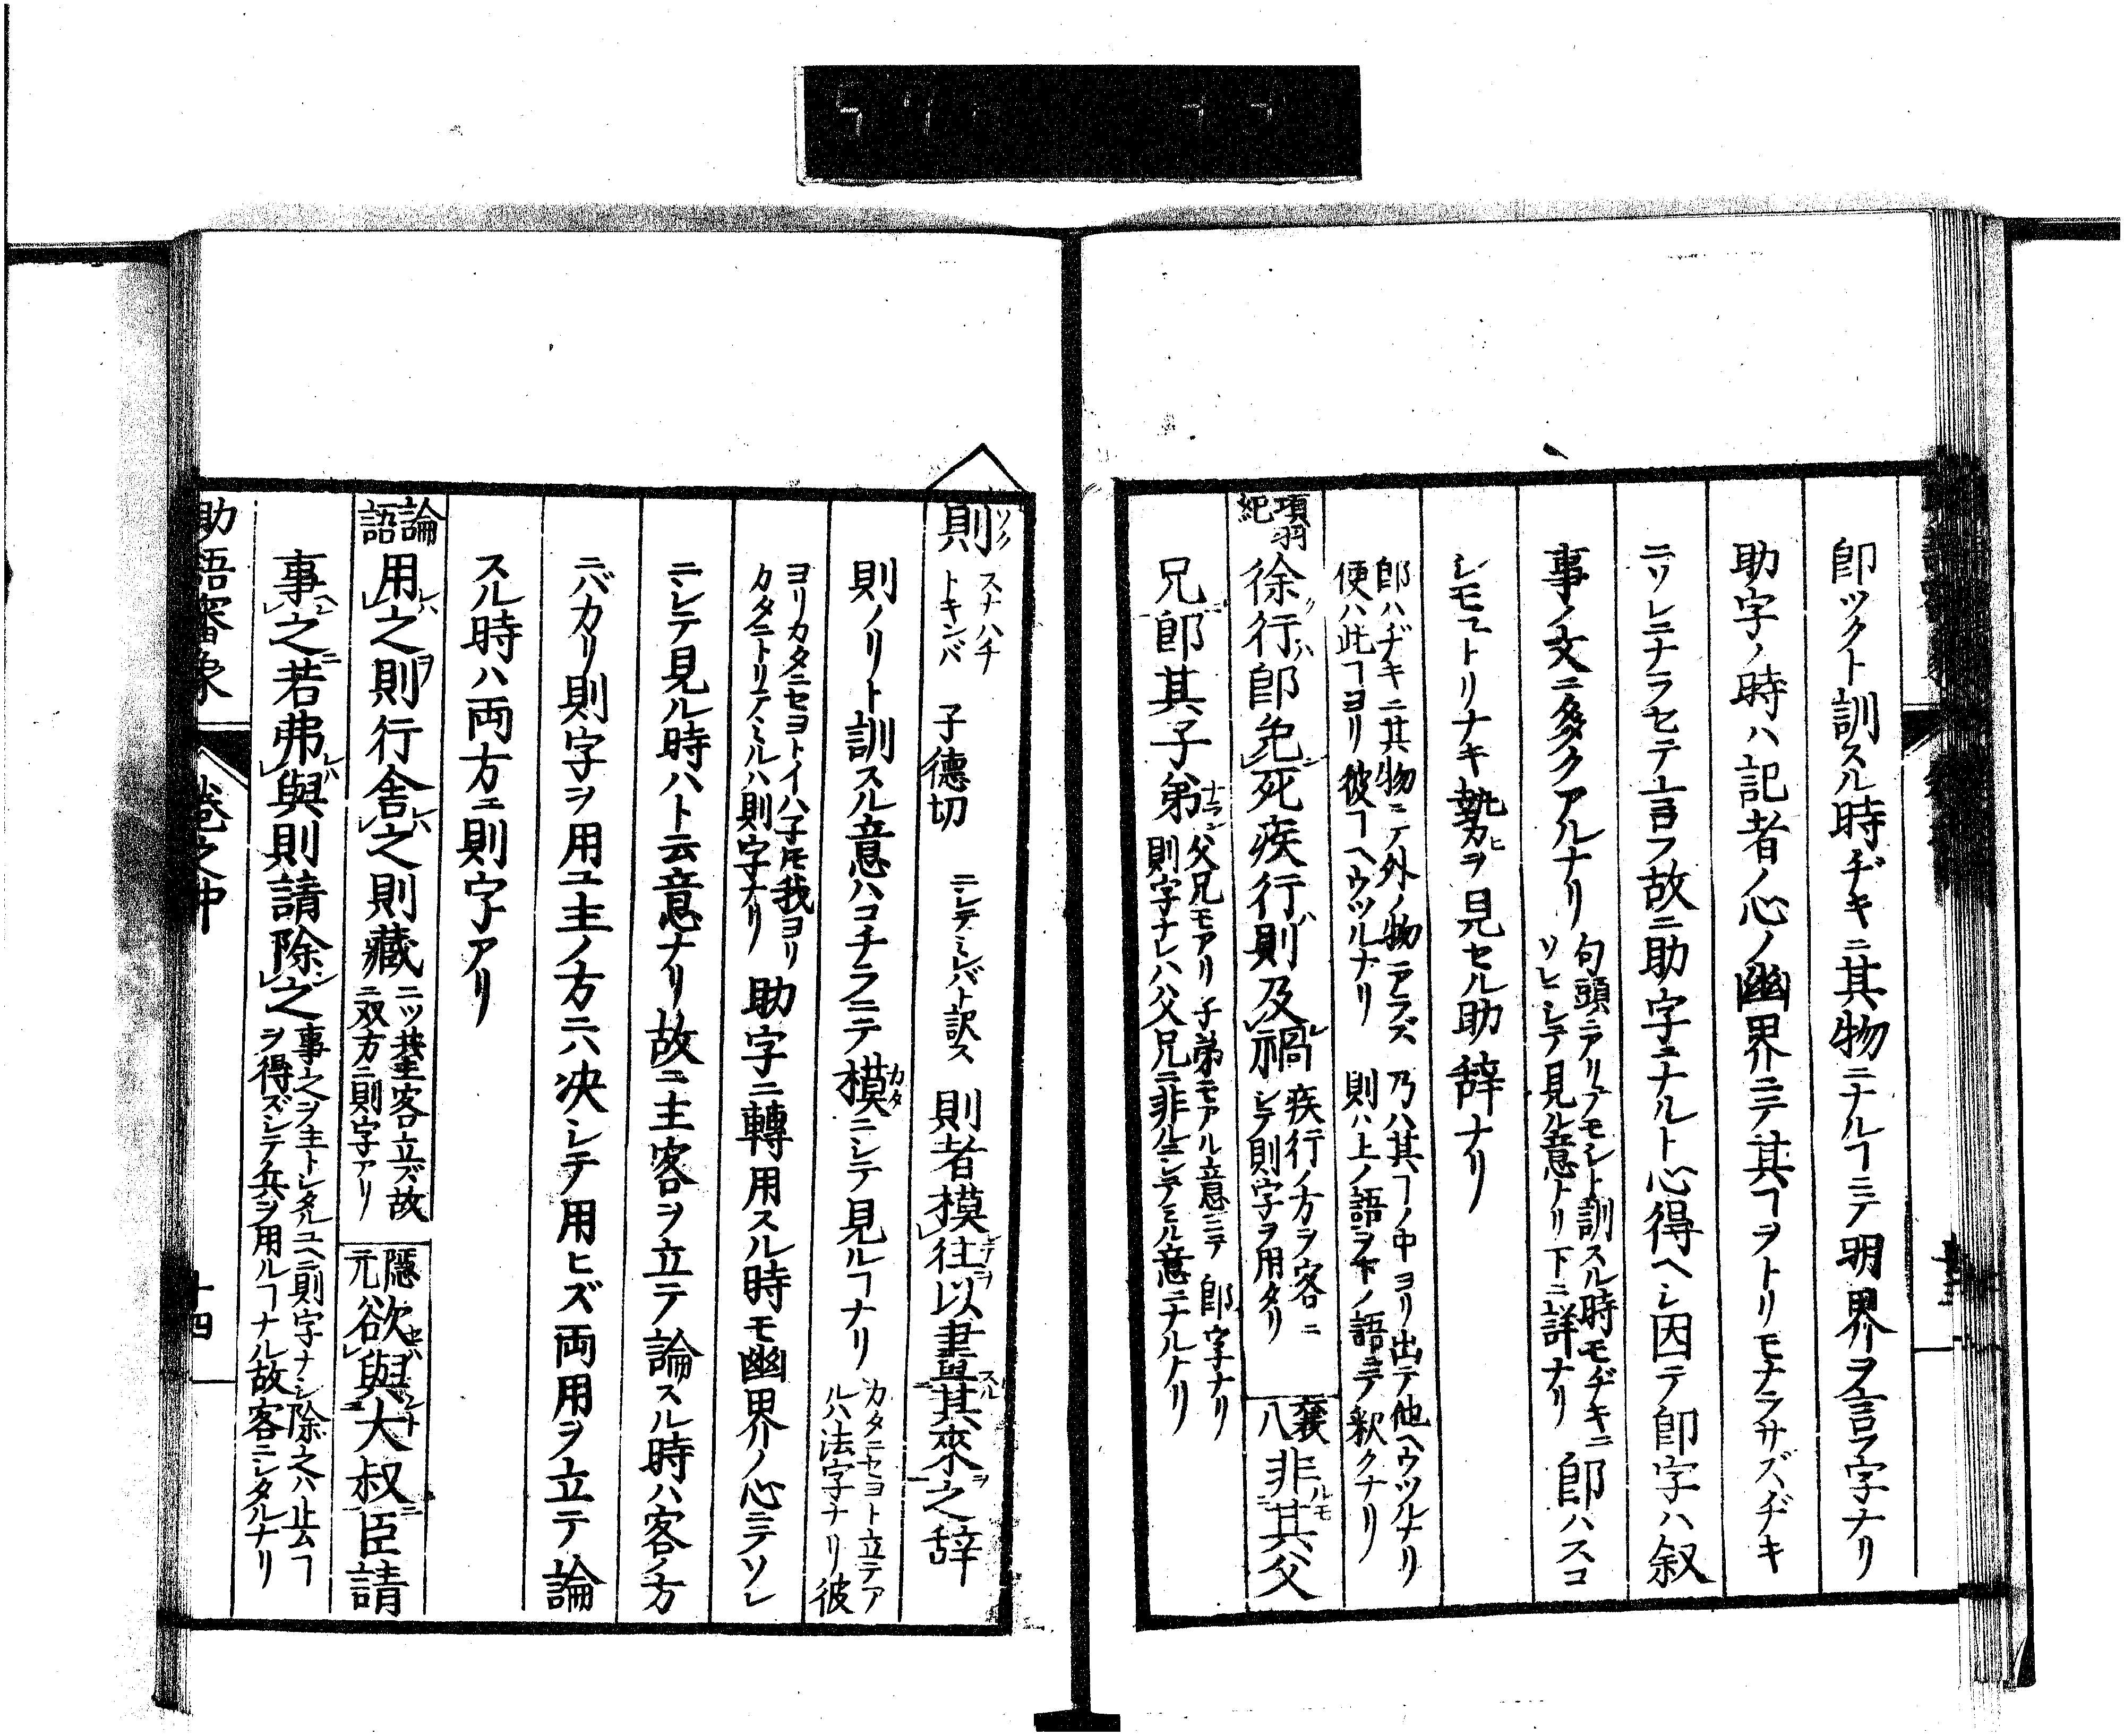 即ツクト訓スル時ヂキニ其物ニナルヿニテ明界ヲ言フ字ナリ
助字ノ時ハ記者ノ心ノ幽界ニテ其ヿヲトリモナラサズヂキ
ニソレニナラセテ言フ故ニ助字ニナルト心得ヘシ因テ即字ハ叙
事ノ文ニ多クアルナリ
句頭ニアリテモシト訓スル時モヂキニ
ソレニシテ見ル意ナリ下ニ詳ナリ
即ハスコ
シモマトリナキ勢ヒヲ見セル助辞ナリ
即ハヂキニ其物ニテ外ノ物ニアラズ 乃ハ其ヿノ中ヨリ出テ他ヘウツルナリ
便ハ此ヿヨリ彼ヿヘウツルナリ 則ハ上ノ語ヲ下ノ語ニテ釈クナリ
項羽
紀
徐行即免死疾行則及禍
疾行ノ方ヲ客ニ
シテ則字ヲ用タリ
襄
八
非其父
兄即其子弟
父兄モアリ子弟モアル意ニテ即字ナリ
則字ナレハ父兄ニ非ルニシテミル意ニナルナリ
則
ソク
スナハチ
トキンバ
子德切
ニシテミレバト訳ス
則者模往以書其來之辞
則ノリト訓スル意ハコチラニテ模ニシテ見ルヿナリ
カタ
カタニセヨト立テア
ルハ法字ナリ彼
ヨリカタニセヨトイハ子ドモ我ヨリ
カタニトリテミルハ則字ナリ
助字ニ轉用スル時モ幽界ノ心ニテソレ
ニシテ見ル時ハト云意ナリ故ニ主客ヲ立テ論スル時ハ客ノ方
ニバカリ則字ヲ用ユ主ノ方ニハ决シテ用ヒズ両用ヲ立テ論
スル時ハ両方ニ則字アリ
論
語
用之則行舎之則藏
二ツ共主客立ズ故
ニ双方ニ則字アリ
隱
元
欲與大叔臣請
事之若弗與則請除之
事之ヲ主トシタルユヘニ則字ナシ除之ハ止ムヿ
ヲ得ズシテ兵ヲ用ルヿナル故客ニシタルナリ
助語審象
卷之中
十四